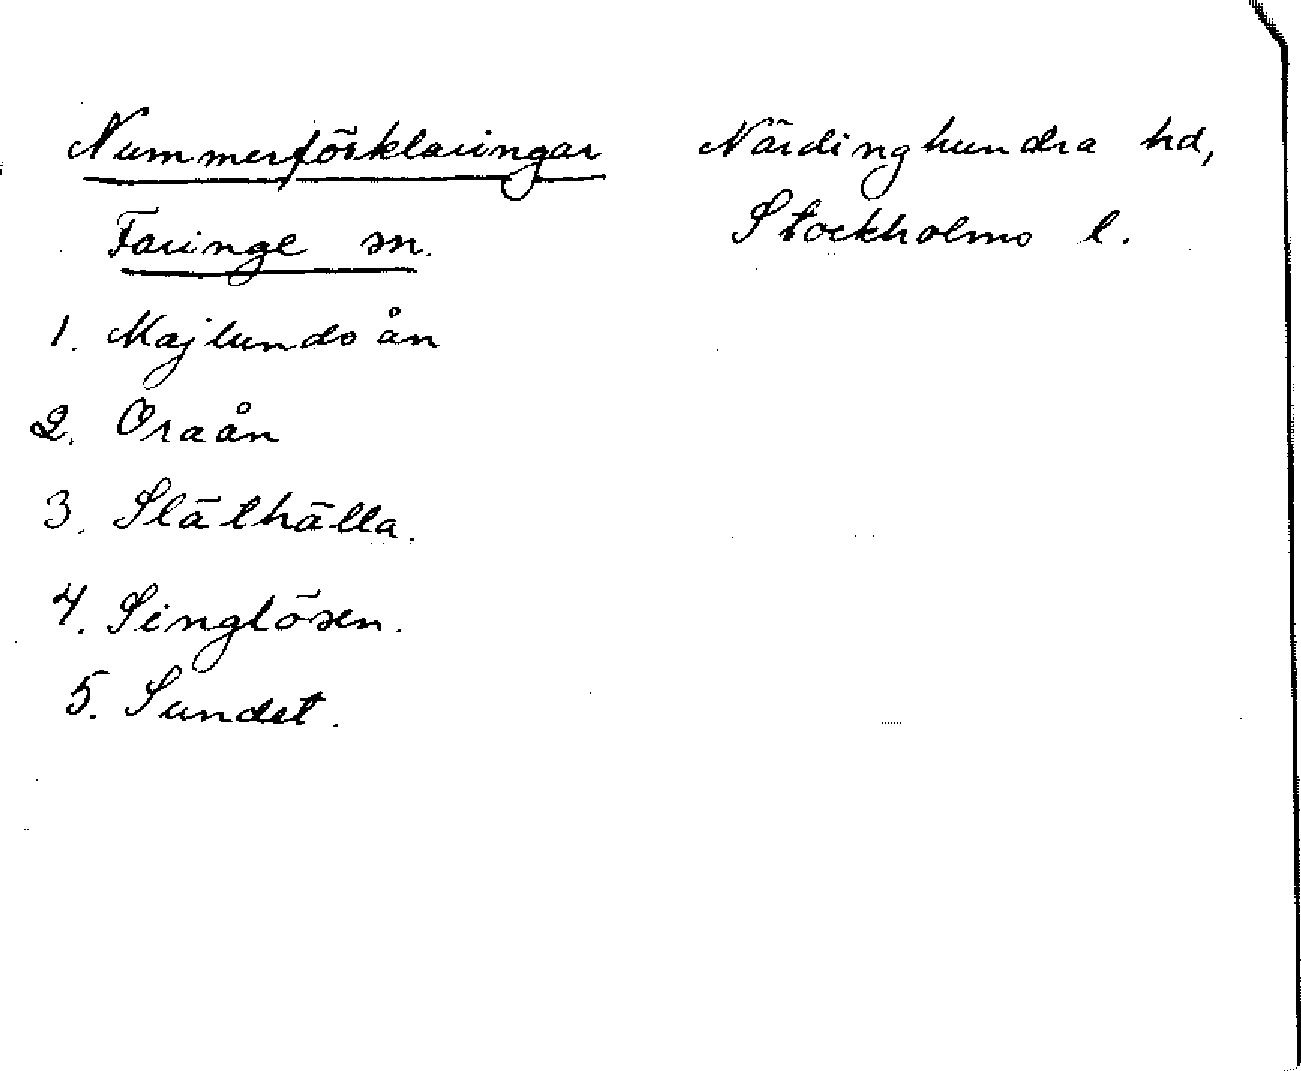 Nummerförklaringar Närdinghundra hd,
Faringe sn. Stockholms l.
1. Majlundsån
2. Oraån
3. Släthälla.
4. Singlösen.
5. Sundet.